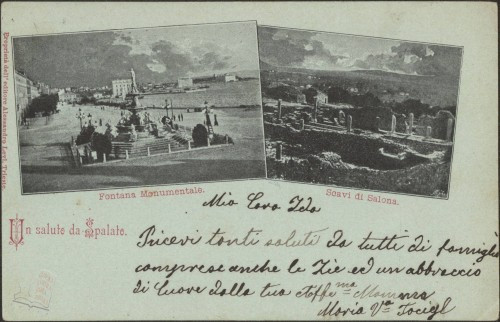 Proprietà dell'editore Alessandro Levi, Trieste.
Fontana Monumentale.
Scavi di Salona.
Un salute da Spalato.
Mia Cara Ida
Ricevi tanti saluti da tutti di famiglia
comprese anche le Zie ed un abbraccio
di cuore dalla tua affma Mamma
Maria Va